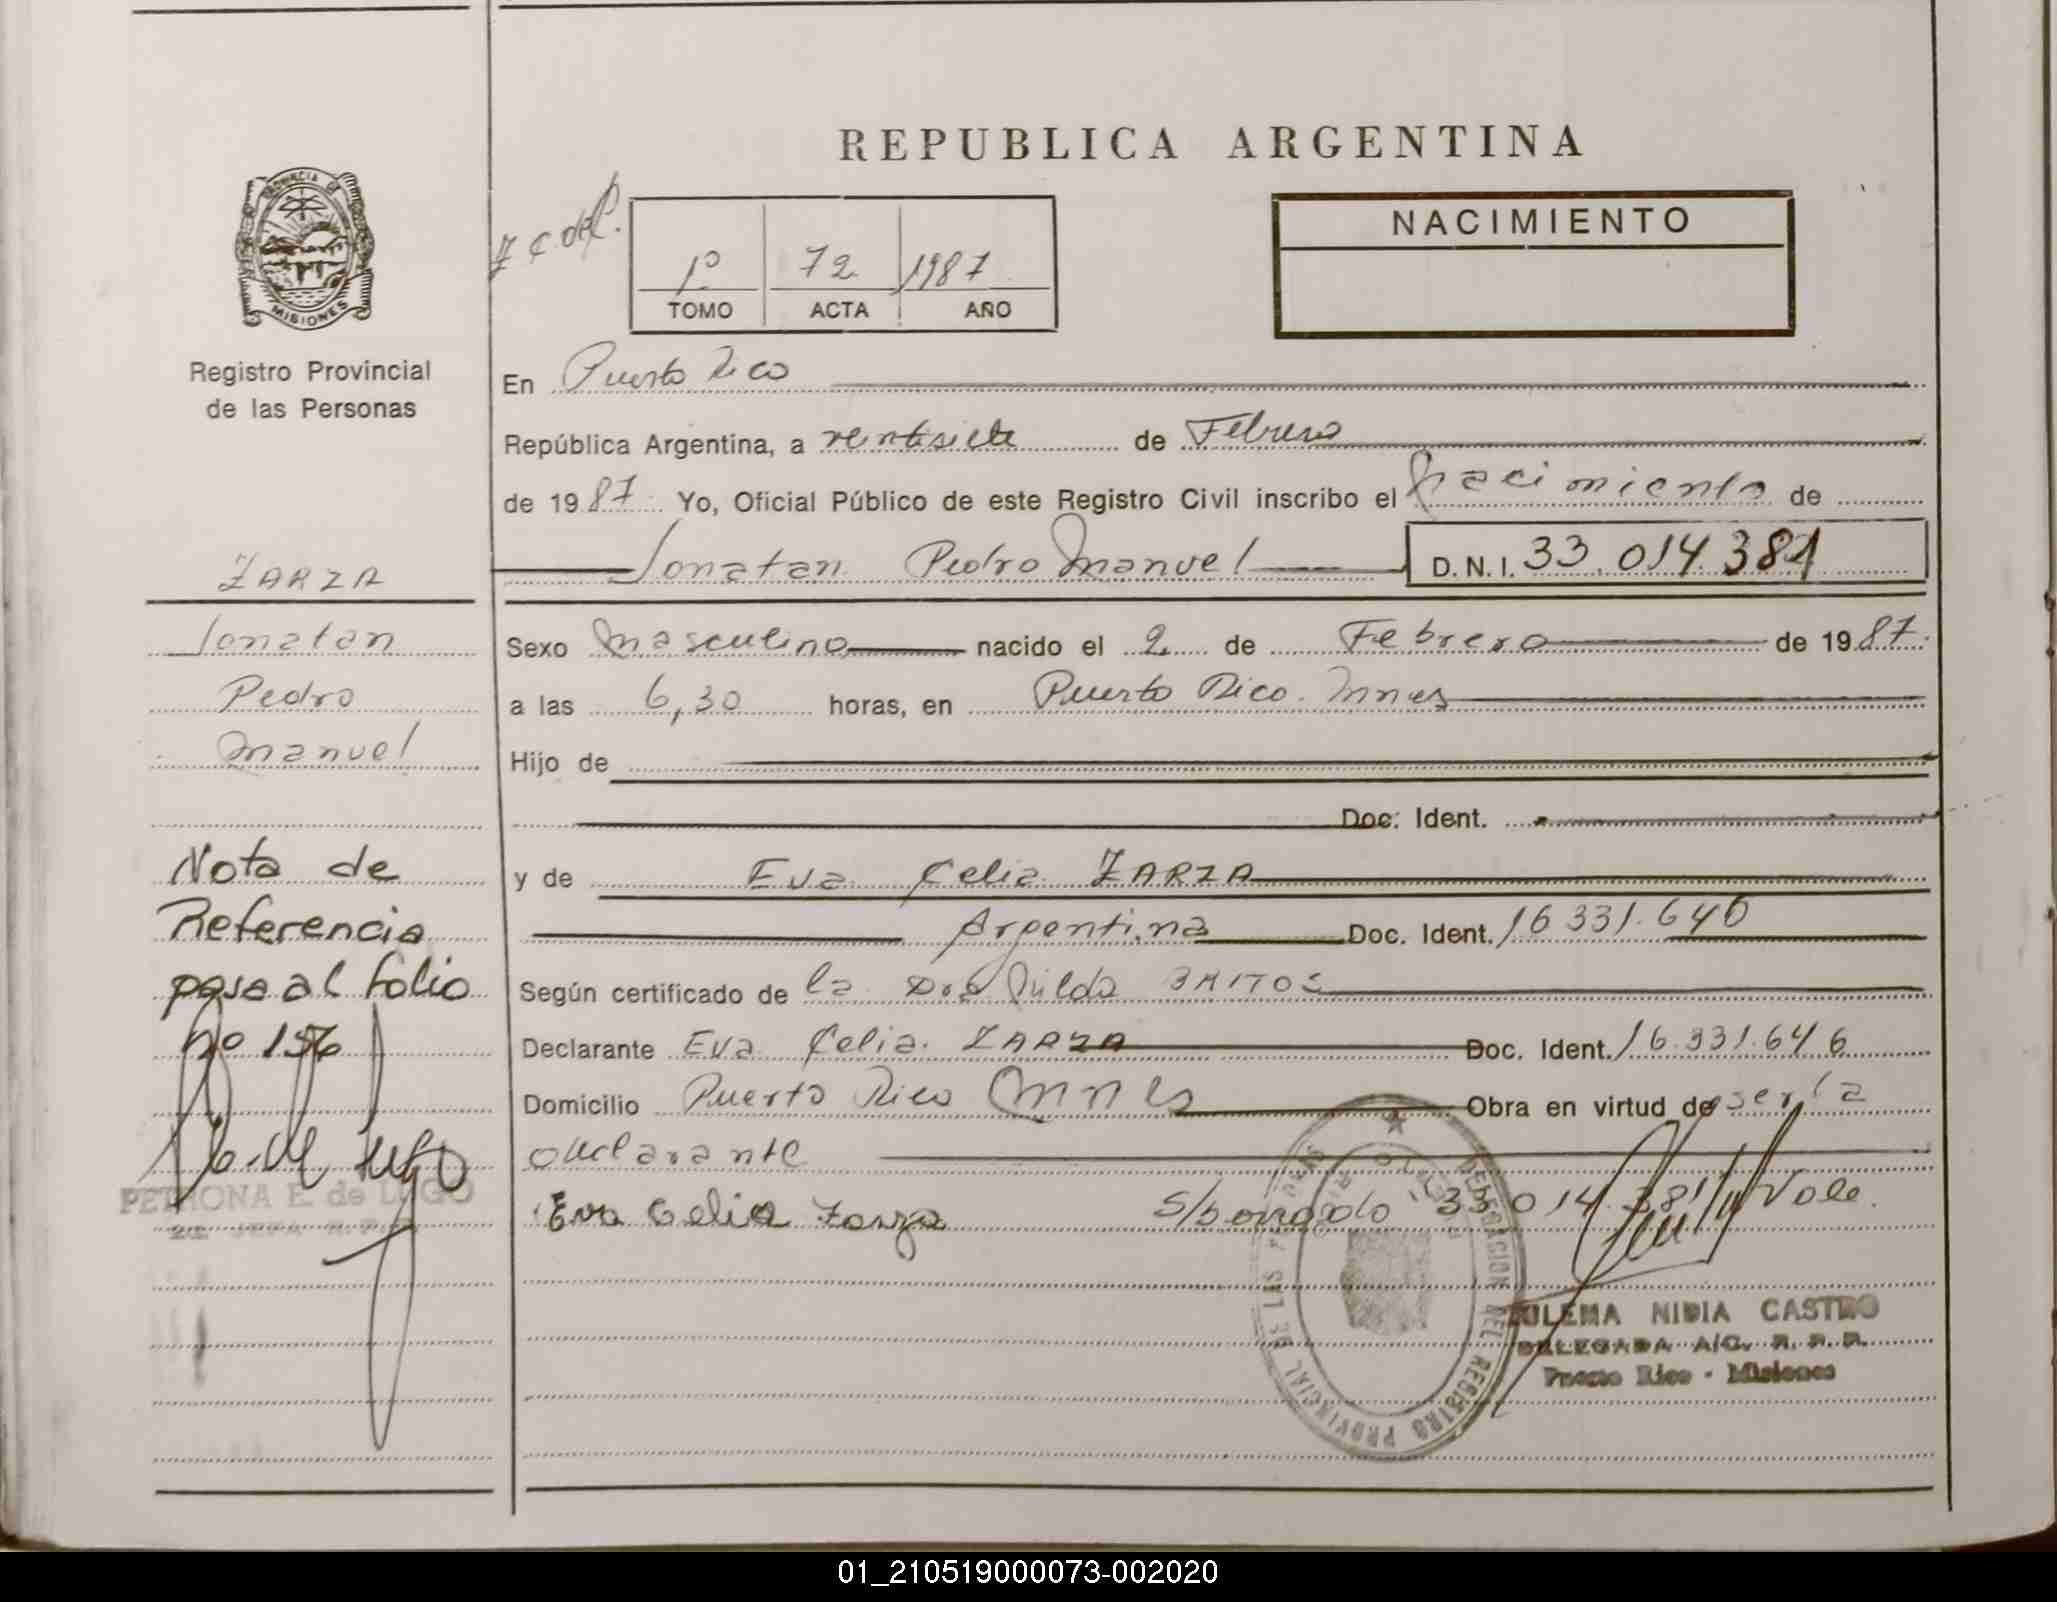 REPUBLICA ARGENTINA
PROVINCIA DE
MISIONES
Registro Provincial
de las Personas
1º 72 1987
TOMO ACTA AÑO
NACIMIENTO
En Puerto Rico
República Argentina, a ventisiete de Febrero
de 1987 Yo, Oficial Público de este Registro Civil inscribo el nacimiento de
Jonatan Pedro Manuel D.N.I. 33.014.381
ZARZA
Jonatan
Pedro
Manuel
Sexo Masculino nacido el 2 de Febrero de 1987.
a las 6,30 horas, en Puerto Rico. Mnes
Hijo de
Doc. Ident.
y de Eva Celia ZARZA
Argentina Doc. Ident. 16 331.646
Según certificado de la Dra
Declarante Eva Celia ZARZA Doc. Ident. 16.331.646
Domicilio Puerto Rico Mnes Obra en virtud de ser la
declarante
Eva Celia Zarza S/borrado "33 014.381" Vale.
Nota de
Referencia
pasa al folio
nº 156
PETRONA E. de LUGO
DELEGACION DEL REGISTRO PROVINCIAL DE LAS PERSONAS
PUERTO RICO
ZULEMA NIDIA CASTRO
DELEGADA A/C. R. P. P.
Puerto Rico - Misiones
01_210519000073-002020